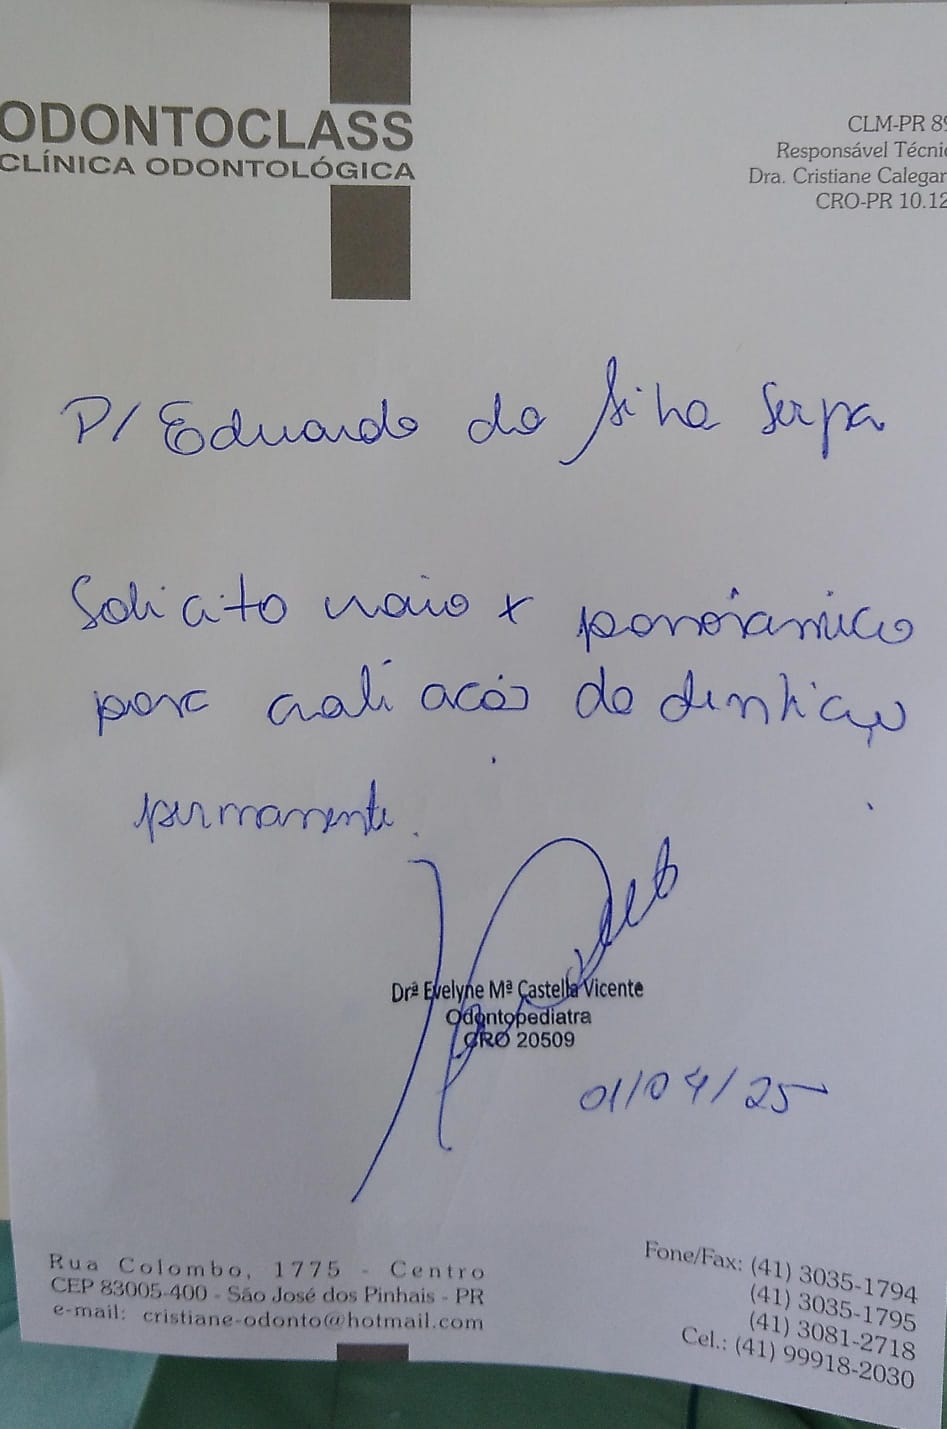 ODONTOCLASS
CLÍNICA ODONTOLÓGICA
CLM-PR 89
Responsável Técnic
Dra. Cristiane Calegar
CRO-PR 10.12
P/ Eduardo da Silva Serpa
Solicito raio x panorâmico
para avaliação da dentição
permanente.
Drª Evelyne Mª Castella Vicente
Odontopediatra
CRO 20509
01/04/25
Rua Colombo, 1775 - Centro
CEP 83005-400 - São José dos Pinhais - PR
e-mail: cristiane-odonto@hotmail.com
Fone/Fax: (41) 3035-1794
(41) 3035-1795
(41) 3081-2718
Cel.: (41) 99918-2030